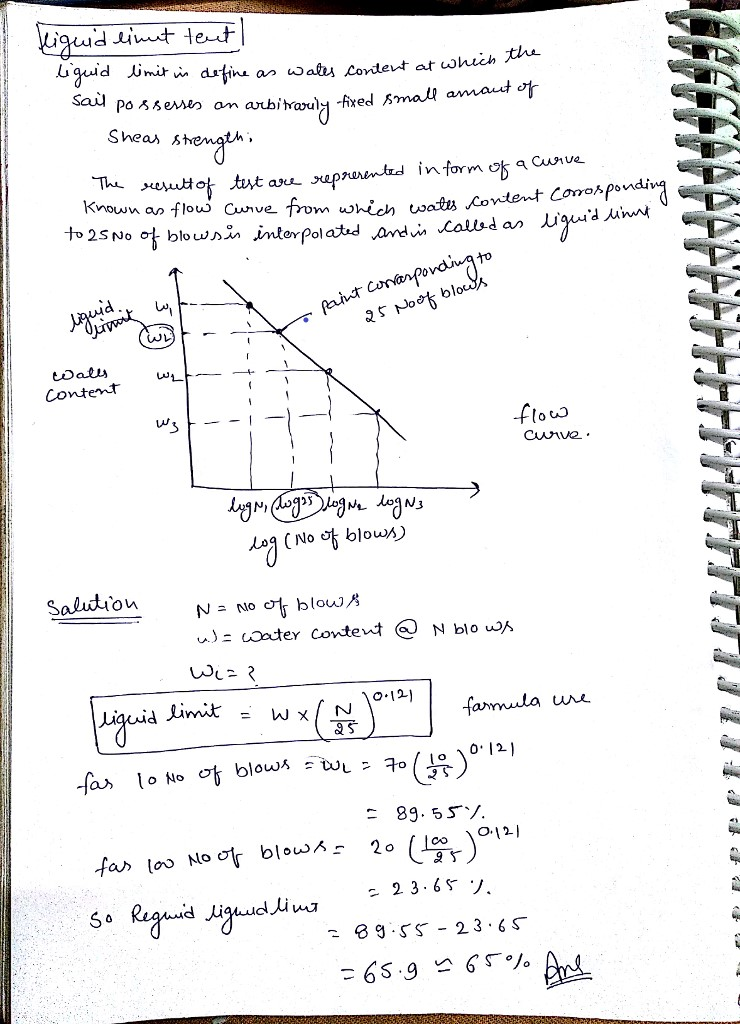 liquid limit test
liquid limit is define as water content at which the
soil possesses an arbitrarily fixed small amount of
shear strength.
The result of test are represented in form of a curve
known as flow curve from which water content corrosponding
to 25 No of blows is interpolated and is called as liquid limit
point corrosponding to
25 No of blows
liquid limit
w1
wL
water content
w2
w3
flow curve.
log N1 log25 log N2 log N3
log (No of blows)
Solution
N = No of blows
w = water content @ N blows
WL = ?
liquid limit = W × (N/25)^0.121 formula use
for 10 No of blows = WL = 70 (10/25)^0.121
= 89.55 %.
for 100 No of blows = 20 (100/25)^0.121
= 23.65 %.
So Requid liquid limit
= 89.55 - 23.65
= 65.9 ≃ 65% Ans